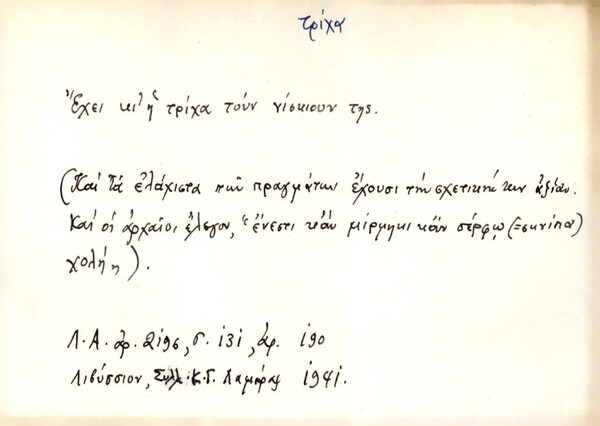 τρίχα
Ἔχει κι' ἡ τρίχα τοὺν νίσκιουν της.
(Καὶ τὰ ἐλάχιστα τῶν πραγμάτων ἔχουσι τὴν σχετικήν των ἀξίαν.
Καὶ οἱ ἀρχαῖοι ἔλεγον, ἔνεστι κἀν μύρμηκι κἀν σέρφῳ (=σκνίπα)
χολή).
Λ.Α. ἀρ. 2196, σ. 131, ἀρ. 190
Λιβύσσιον, Συλλ. Κ.Γ. 1941.